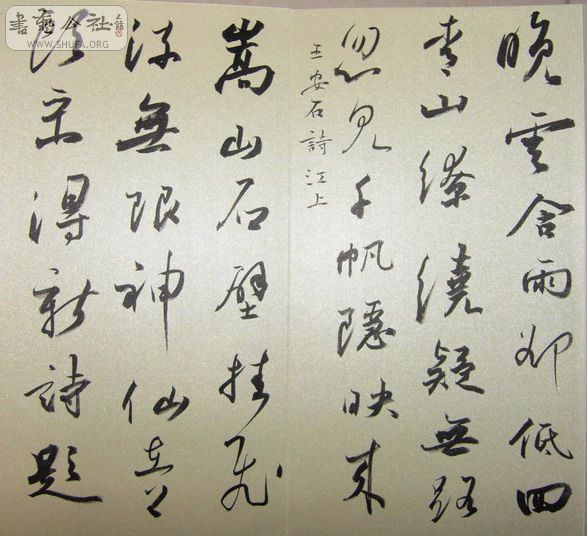 晚雲含雨卻低回
青山繚繞疑無路
忽見千帆隱映來
王安石詩江上
嵩山石壁挂飛
流無限神仙在上
頭采得新詩題
WWW.SHUFA.ORG